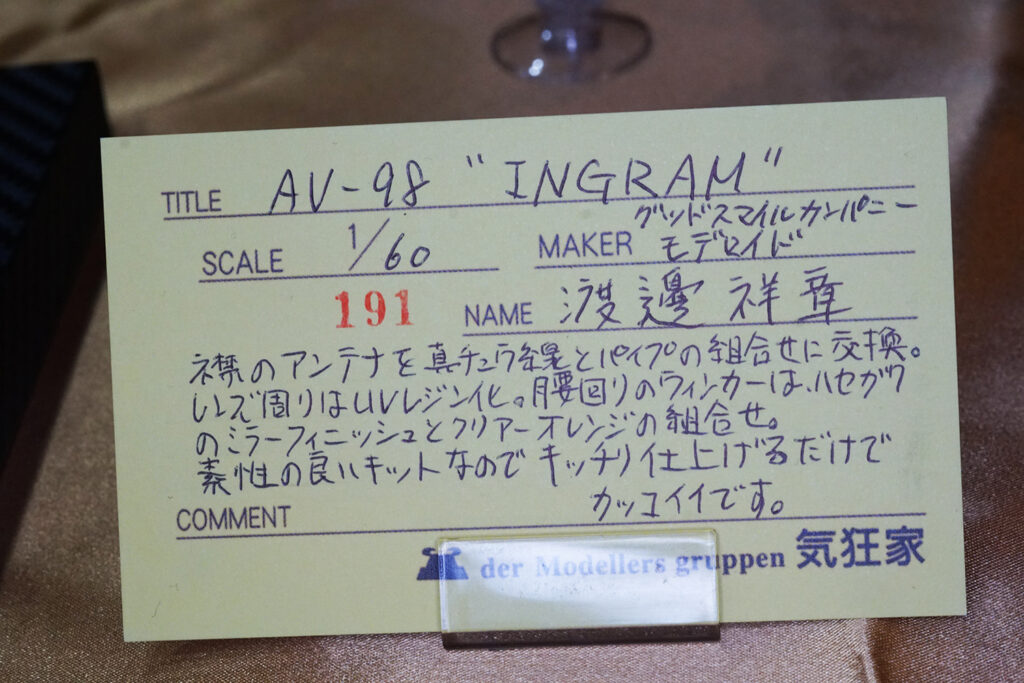 TITLE AV-98 "INGRAM"
SCALE 1/60
MAKER グッドスマイルカンパニー
モデロイド
191
NAME 渡邊祥章
襟のアンテナを真チュウ線とパイプの組合せに交換。
レンズ周りはUVレジン化。腰回りのウィンカーは、ハセガワ
のミラーフィニッシュとクリアーオレンジの組合せ。
素性の良いキットなのでキッチリ仕上げるだけで
カッコイイです。
COMMENT
der Modellers gruppen 気狂家